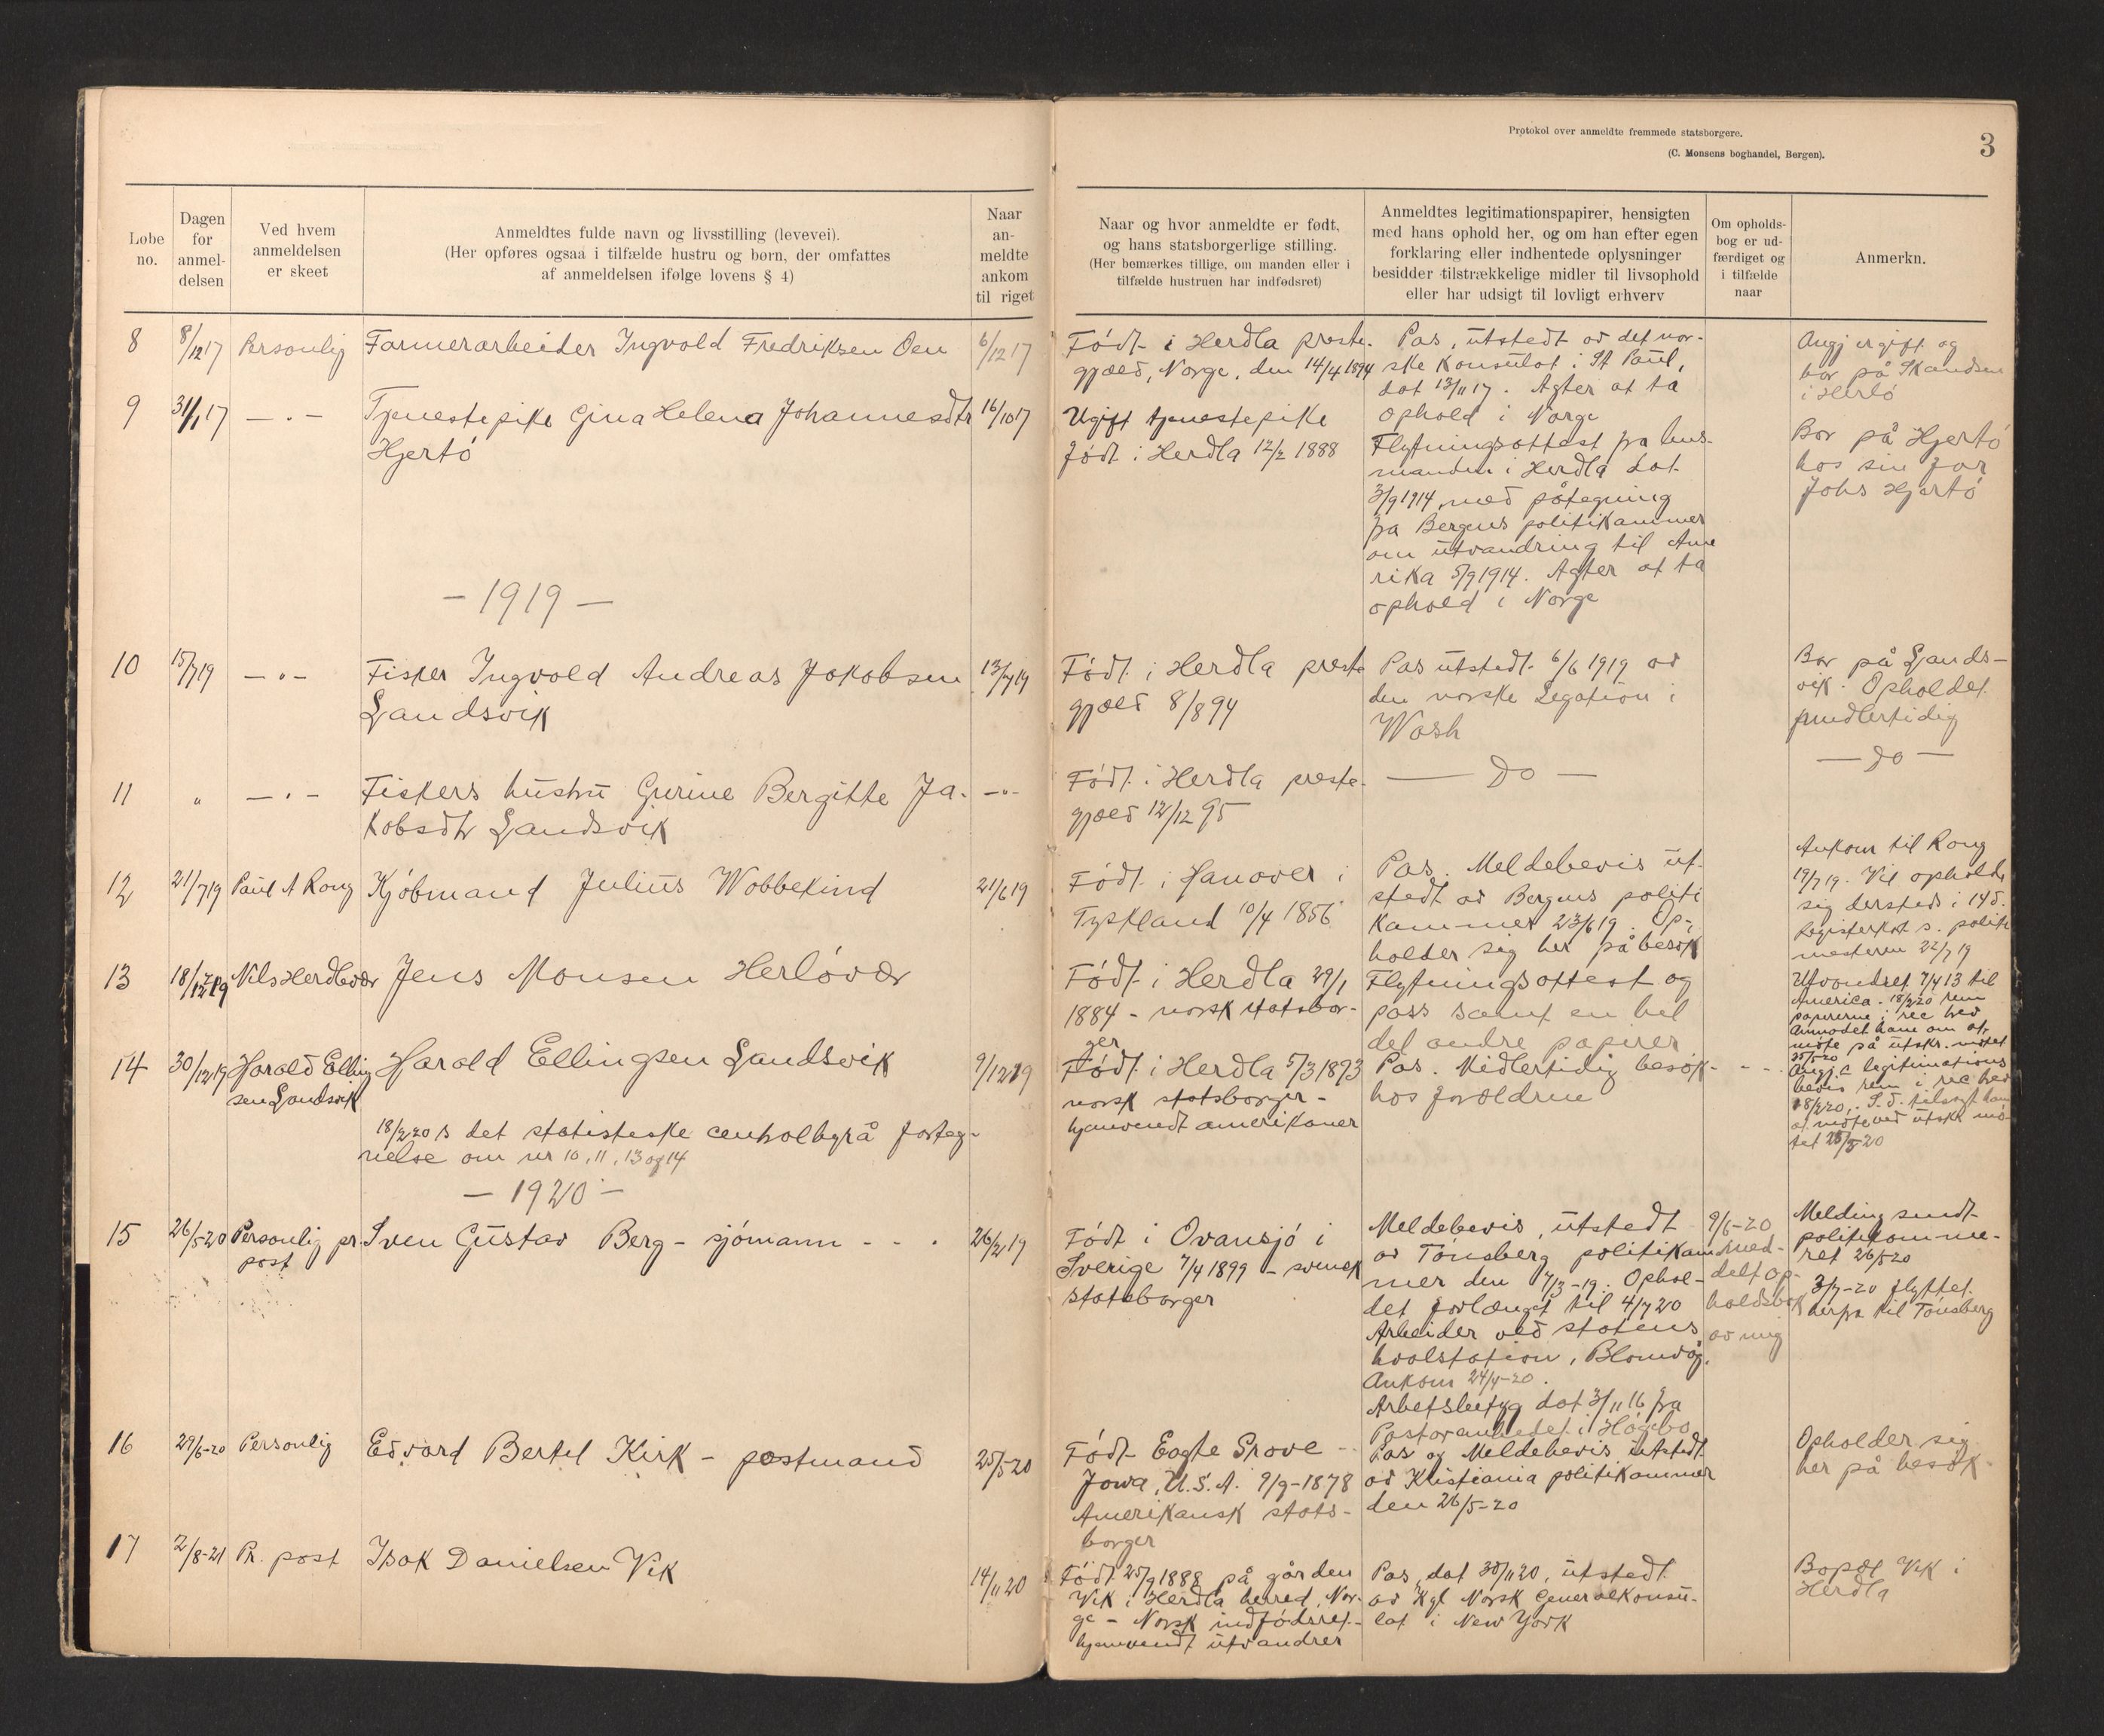 Protokol over anmeldte fremmede statsborgere.
(C. Monsens boghandel, Bergen).
3
Løbe no.
Dagen for anmeldelsen
Ved hvem anmeldelsen er skeet
Anmeldtes fulde navn og livsstilling (levevei).
(Her opføres ogsaa i tilfælde hustru og børn, der omfattes
af anmeldelsen ifølge lovens § 4)
Naar anmeldte ankom til riget
Naar og hvor anmeldte er født,
og hans statsborgerlige stilling.
(Her bemærkes tillige, om manden eller i
tilfælde hustruen har indfødsret)
Anmeldtes legitimationspapirer, hensigten
med hans ophold her, og om han efter egen
forklaring eller indhentede oplysninger
besidder tilstrækkelige midler til livsophold
eller har udsigt til lovligt erhverv
Om opholds-
bog er ud-
færdiget og
i tilfælde
naar
Anmerkn.
8 8/12 17 Personlig Farmerarbeider Ingvald Fredriksen Oen 6/12 17
Födt i Herdla preste-
gjæld, Norge, den 14/4 1894
Pas, utstedt av det nor-
ske Konsulat i St Paul,
dat 13/11 17. Agter at ta
ophold i Norge
Angj er gift og
bor på Skandsen
i Herlö
9 31/1 17 — " — Tjenestepike Gina Helena Johannesdtr 16/10 17
Hjertö
Ugift tjenestepike
Födt i Herdla 12/2 1888
Flytningsattest fra lens-
manden i Herdla dat
3/9 1914, med påtegning
fra Bergens politikammer
om utvandring til Ame
rika 5/9 1914. Agter at ta
ophold i Norge
Bor på Hjertö
hos sin far
Johs Hjertö
— 1919 —
10 15/7 19 — " — Fisker Ingvald Andreas Jakobsen 13/7 19
Landsvik
Födt i Herdla preste
gjæld 8/8 94
Pas utstedt 6/6 1919 av
den norske Legation i
Wash
Bor på Lands-
vik. Opholdet
midlertidig
11 " — " — Fiskers hustru Gurine Bergitte Ja- — " —
kobsdtr Landsvik
Födt i Herdla preste-
gjæld 12/12 95
— Do —
— Do —
12 21/7 19 Paul A Rong Kjöbmand Julius Wobbekind 21/6 19
Födt i Hanover i
Tyskland 10/4 1856
Pas. Meldebevis ut-
stedt av Bergens politi
kammer 23/6 19. Op-
holder sig her på besök
Ankom til Rong
19/7 19. Vil opholde
sig dersteds i 14 d.
s. politi
mesteren 22/7 19
13 18/12 19 Nils Herdlevær Jens Monsen Herlövær
Födt i Herdla 29/1
1884 - norsk statsbor-
ger
Flytningsattest og
pass samt en hel
del andre papirer
Utvandret 7/4 13 til
America. 18/2 20 rem
papirerne i rec brev
Anmodet ham om at
möte på utskr. mötet
25/5 20
14 30/12 19 Harald Elling Harald Ellingsen Landsvik 9/12 19
sen Landsvik
Födt i Herdla 5/3 1893
norsk statsborger -
hjemvendt amerikaner
Pas. Midlertidig besök
hos forældrene
Angj s legitimations
bevis rem i rec brev
18/2 20. S. d. tilsagt ham
at möte ved utskr mö-
tet 25/5 20
18/2 20 s det statistiske centralbyrå forteg-
nelse om nr 10, 11, 13 og 14
— 1920 —
15 26/5-20 Personlig pr. Sven Gustav Berg - sjömann - - . 26/2 19
post
Födt i Ovansjö i
Sverige 7/4 1899 - svensk
statsborger
Meldebevis, utstedt
av Tönsberg politikam
mer den 7/3-19. Ophol-
det forlænget til 4/7 20
Arbeider ved statens
hvalstation, Blomvåg.
Ankom 24/4-20.
Arbetsbetyg dat 3/11 16 fra
Pastorambetet i Högbo
9/6-20
med-
delt op-
holdsbok
av mig
Melding sendt
politikamme-
ret 26/5 20
3/7-20 flyttet
herfra til Tönsberg
16 29/6-20 Personlig Edvard Bertel Kirk - postmand 25/5-20
Födt Eagle Grove -
Jowa, U.S.A. 9/9-1878
Amerikansk stats-
borger
Pas og Meldebevis utstedt
av Kristiania politikammer
den 26/5-20
Opholder sig
her på besök.
17 2/8-21 Pr. post Isak Danielsen Vik 14/11 20
Födt 25/9 1888 på gården
Vik i Herdla herred, Nor-
ge - Norsk indfödsret -
hjemvendt utvandrer
Pas, dat 30/11 20, utstedt
av Kgl Norsk Generalkonsu-
lat i New York
Bopæl Vik i
Herdla